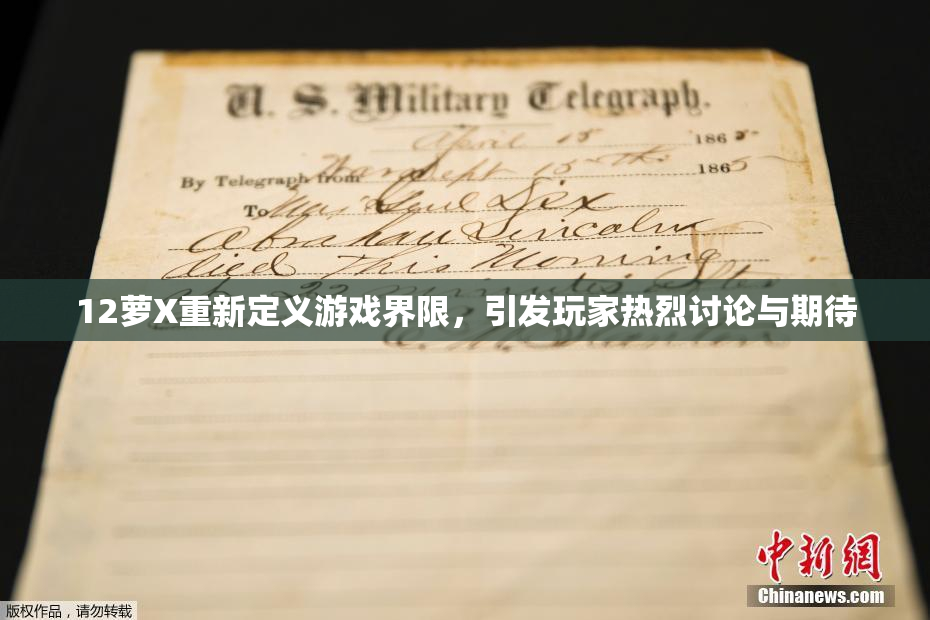 U. S. Military Telegraph.
April 15 1865
By Telegraph from War Dept 15th 1865
To Maj Genl Dix
Abraham Lincoln
died This Morning
at 22 minutes after
12萝X重新定义游戏界限，引发玩家热烈讨论与期待
E. M. Stanton
中新网
Chinanews.com
版权作品，请勿转载